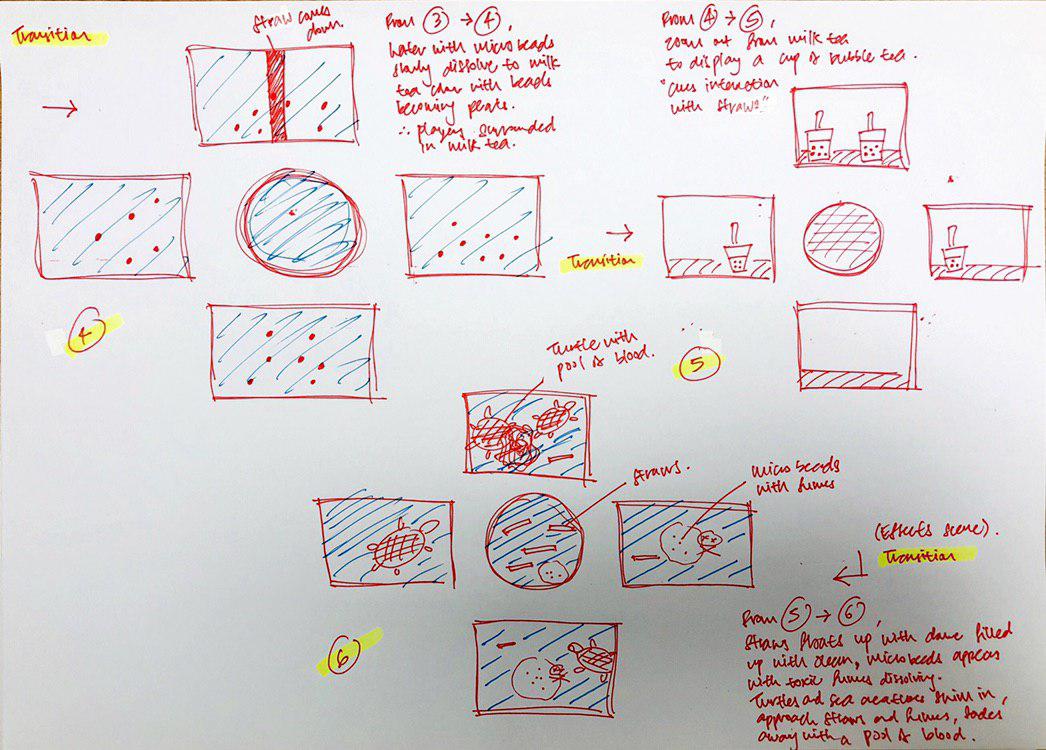 Transition
Straw comes
down.
From 3 → 4,
water with microbeads
slowly dissolve to milk
tea with beads
becoming pearls.
∴ players surrounded
in milk tea.
From 4 → 5,
zoom out from milk tea
to display a cup of bubble tea.
"cues interaction
with straws"
4
Transition
5
Turtle with
pool of blood.
straws.
micro beads
with fumes
6
(Effects scene).
Transition
From 5 → 6,
Straws floats up with dome filled
up with ocean, microbeads appears
with toxic fumes dissolving.
Turtles and sea creatures swim in,
approach straws and fumes, fades
away with a pool of blood.